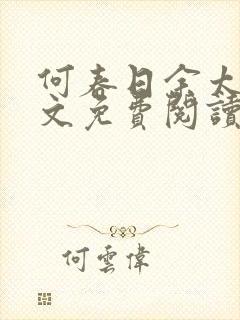 何春日余大
文免費閱讀
何雲偉